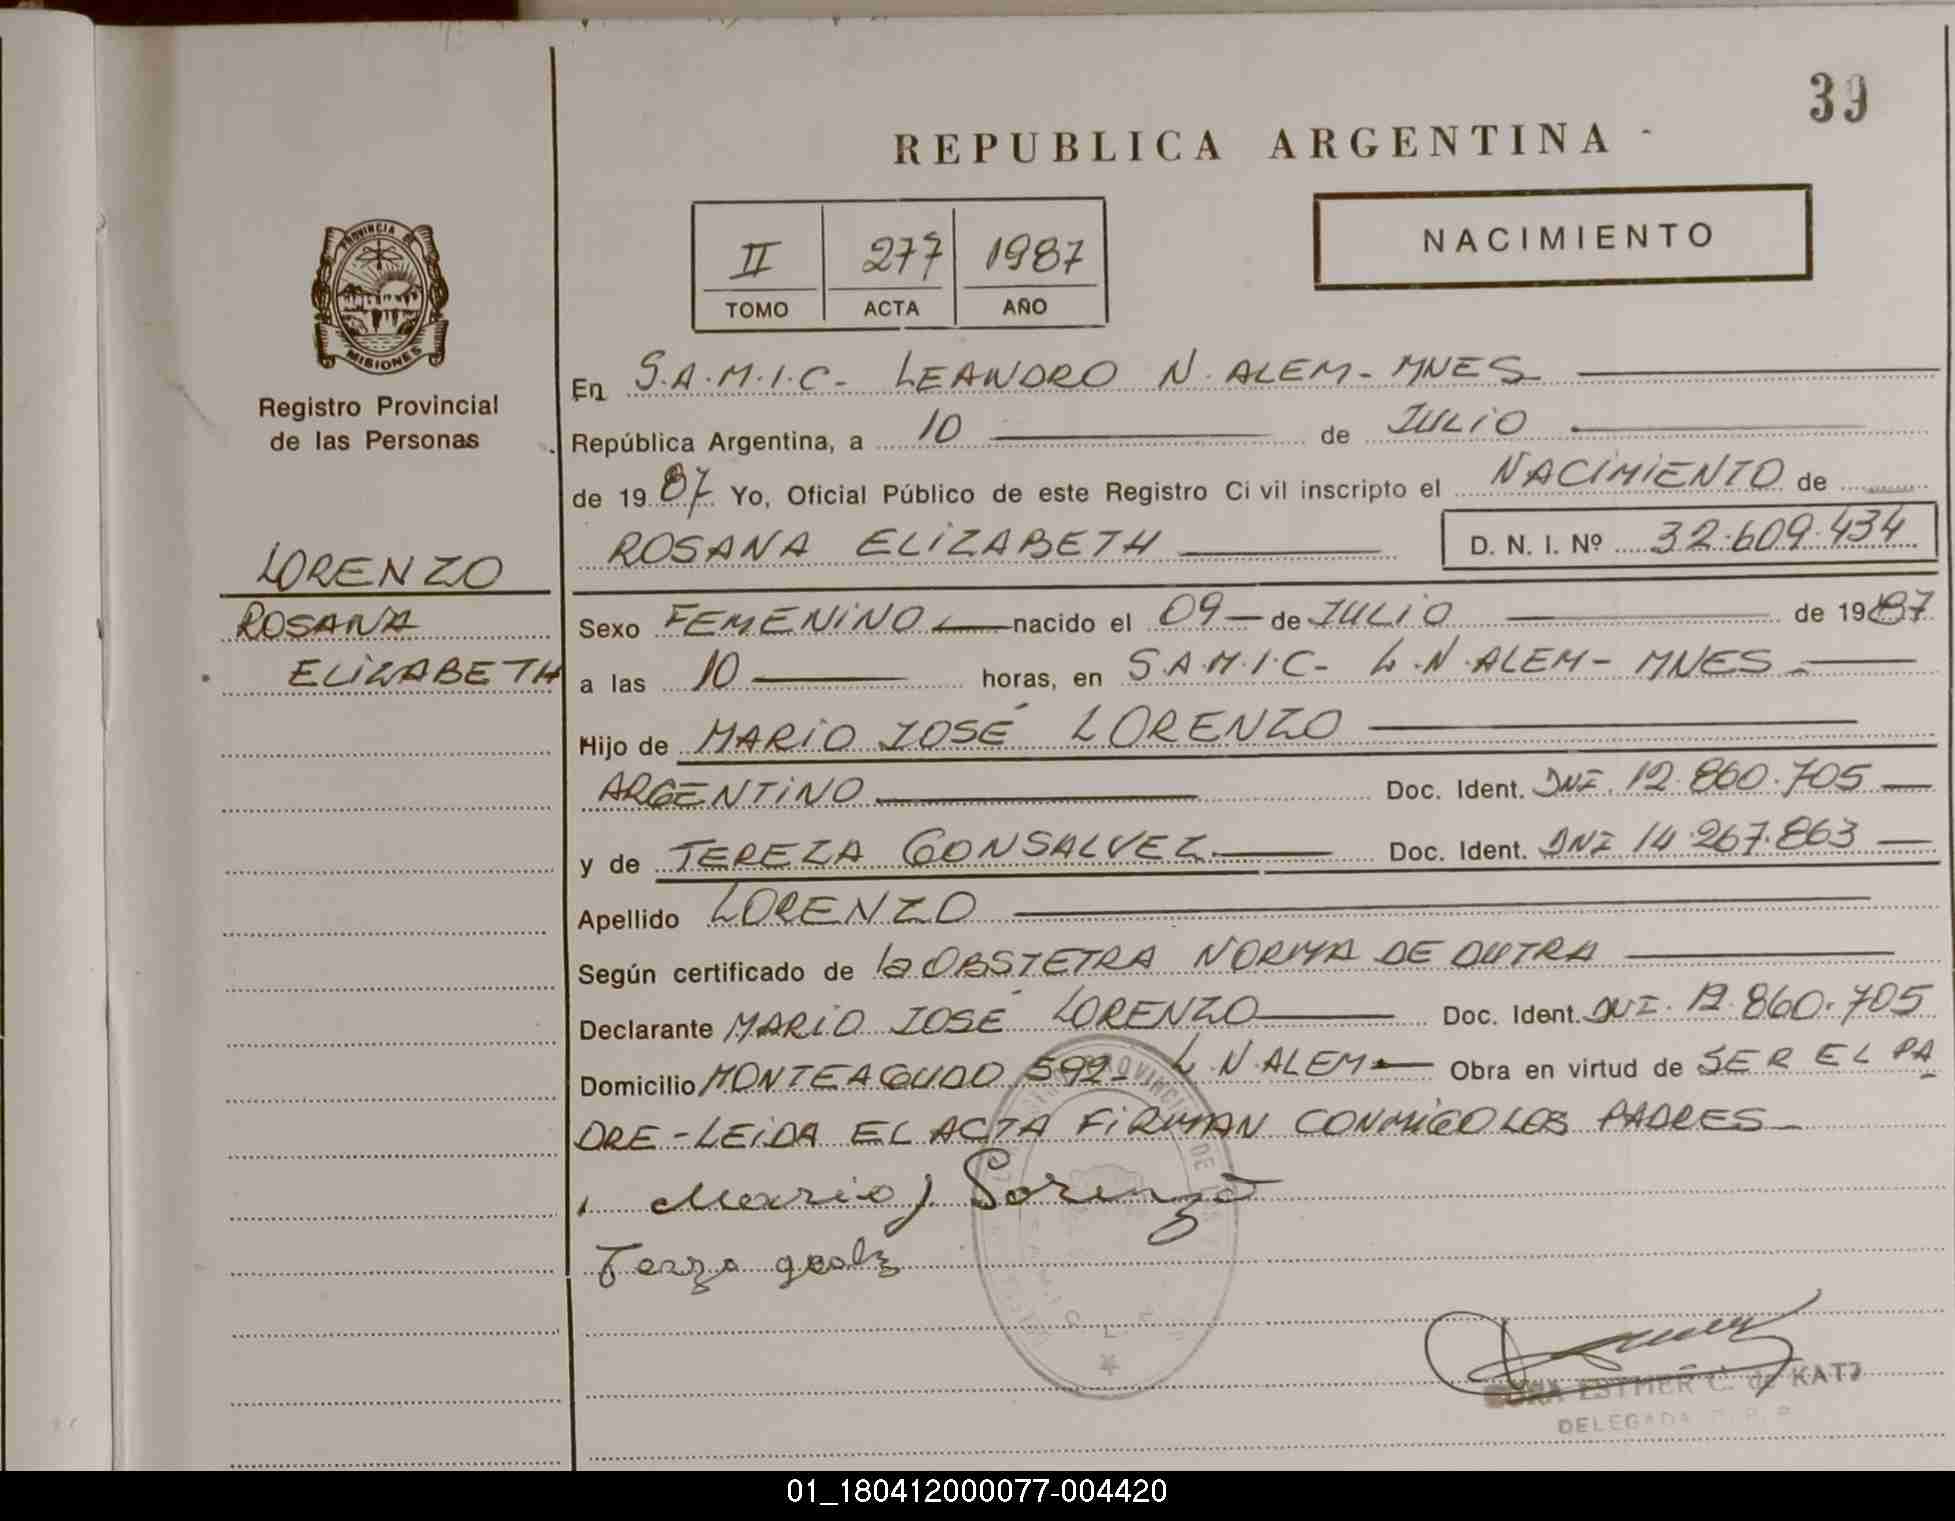 39
REPUBLICA ARGENTINA
II 277 1987
TOMO ACTA AÑO
NACIMIENTO
PROVINCIA DE
MISIONES
Registro Provincial
de las Personas
LORENZO
ROSANA
ELIZABETH
En S.A.M.I.C- LEANDRO N. ALEM- MNES
República Argentina, a 10 de JULIO
de 1987. Yo, Oficial Público de este Registro Civil inscripto el NACIMIENTO de
ROSANA ELIZABETH D. N. I. Nº 32.609.434
Sexo FEMENINO nacido el 09 de JULIO de 1987
a las 10 horas, en S.A.M.I.C- L.N.ALEM- MNES-
Hijo de MARIO JOSÉ LORENZO
ARGENTINO Doc. Ident. DNI. 12.860.705
y de TEREZA GONSALVEZ Doc. Ident. DNI 14.267.863
Apellido LORENZO
Según certificado de la OBSTETRA NORMA DE DUTRA
Declarante MARIO JOSÉ LORENZO Doc. Ident. DNI. 12.860.705
Domicilio MONTEAGUDO 592- L.N.ALEM- Obra en virtud de SER EL PA
DRE-LEIDA EL ACTA FIRMAN CONMIGO LOS PADRES-
Mario J Lorenzo
ESTHER C. de KATZ
DELEGADA R. P. P.
01_180412000077-004420